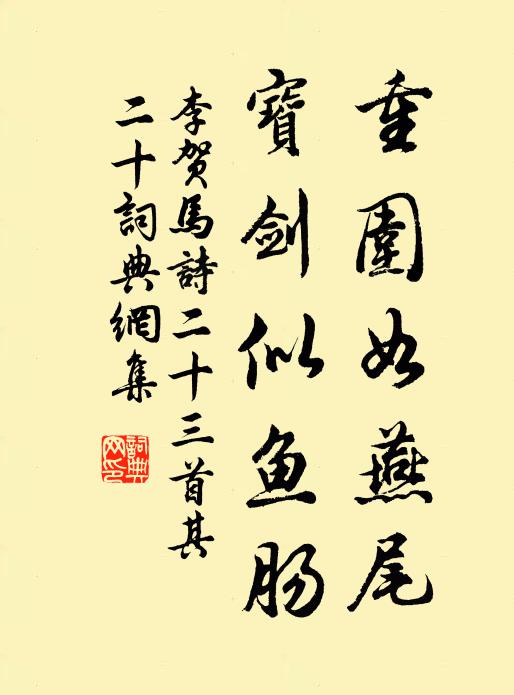 重圍如燕尾
寶劍似鱼肠
李贺馬詩二十三首其
二十詞典網集
詞典网印